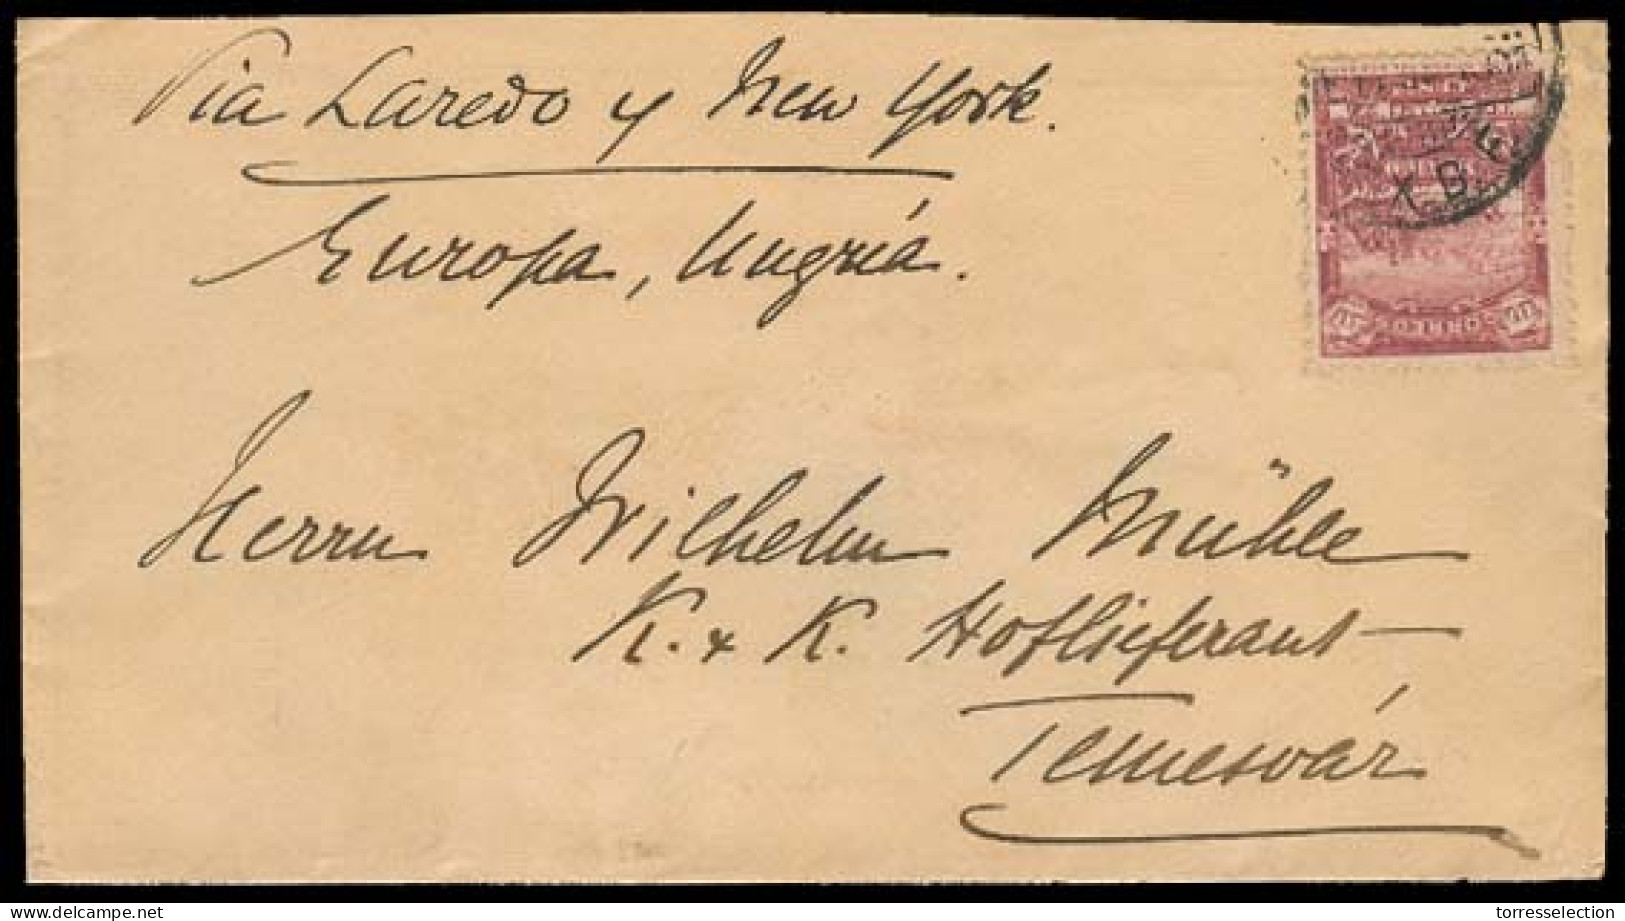 Via Laredo y New York.
Europa, Ungría.
Herrn Wilhelm Mühle
K. & K. Hoflieferant
Temesvár
delcampe.net
torresselection